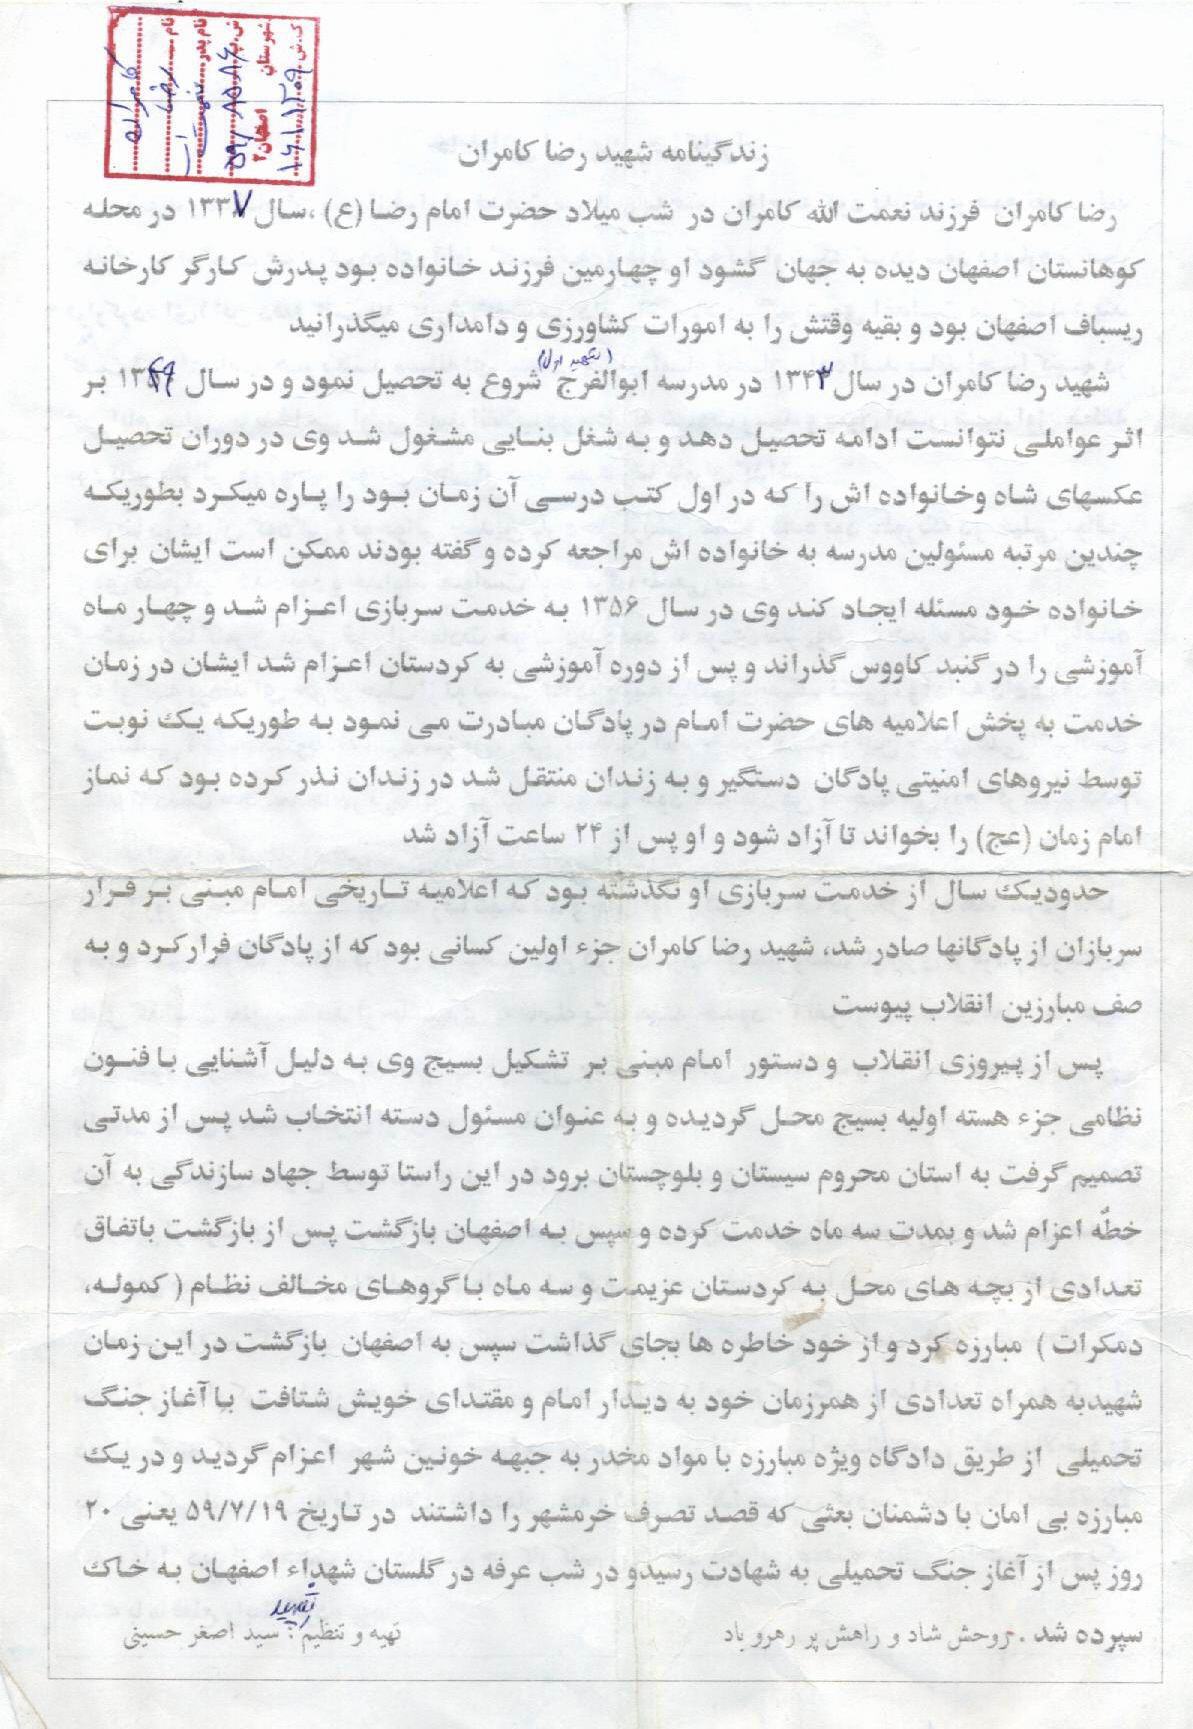 ک.ش ۱۶۱۱۲۰۹
شهرستان اصفهان ۲
ش.پ ۵۹/۸۵۸۶
نام پدر نعمت ا...
نام رضا
کامران
زندگینامه شهید رضا کامران
رضا کامران فرزند نعمت الله کامران در شب میلاد حضرت امام رضا (ع) ،سال ۱۳۳۷ در محله
کوهانستان اصفهان دیده به جهان گشود او چهارمین فرزند خانواده بود پدرش کارگر کارخانه
ریسباف اصفهان بود و بقیه وقتش را به امورات کشاورزی و دامداری میگذرانید
(شهید اول)
شهید رضا کامران در سال ۱۳۴۳ در مدرسه ابوالفرج شروع به تحصیل نمود و در سال ۱۳۴۹ بر
اثر عواملی نتوانست ادامه تحصیل دهد و به شغل بنایی مشغول شد وی در دوران تحصیل
عکسهای شاه وخانواده اش را که در اول کتب درسی آن زمان بود را پاره میکرد بطوریکه
چندین مرتبه مسئولین مدرسه به خانواده اش مراجعه کرده و گفته بودند ممکن است ایشان برای
خانواده خود مسئله ایجاد کند وی در سال ۱۳۵۶ به خدمت سربازی اعزام شد و چهار ماه
آموزشی را در گنبد کاووس گذراند و پس از دوره آموزشی به کردستان اعزام شد ایشان در زمان
خدمت به پخش اعلامیه های حضرت امام در پادگان مبادرت می نمود به طوریکه یک نوبت
توسط نیروهای امنیتی پادگان دستگیر و به زندان منتقل شد در زندان نذر کرده بود که نماز
امام زمان (عج) را بخواند تا آزاد شود و او پس از ۲۴ ساعت آزاد شد
حدودیک سال از خدمت سربازی او نگذشته بود که اعلامیه تاریخی امام مبنی بر فرار
سربازان از پادگانها صادر شد، شهید رضا کامران جزء اولین کسانی بود که از پادگان فرار کرد و به
صف مبارزین انقلاب پیوست
پس از پیروزی انقلاب و دستور امام مبنی بر تشکیل بسیج وی به دلیل آشنایی با فنون
نظامی جزء هسته اولیه بسیج محل گردیده و به عنوان مسئول دسته انتخاب شد پس از مدتی
تصمیم گرفت به استان محروم سیستان و بلوچستان برود در این راستا توسط جهاد سازندگی به آن
خطّه اعزام شد و بمدت سه ماه خدمت کرده و سپس به اصفهان بازگشت پس از بازگشت باتفاق
تعدادی از بچه های محل به کردستان عزیمت و سه ماه با گروهای مخالف نظام ( کموله،
دمکرات ) مبارزه کرد و از خود خاطره ها بجای گذاشت سپس به اصفهان بازگشت در این زمان
شهیدبه همراه تعدادی از همرزمان خود به دیدار امام و مقتدای خویش شتافت با آغاز جنگ
تحمیلی از طریق دادگاه ویژه مبارزه با مواد مخدر به جبهه خونین شهر اعزام گردید و در یک
مبارزه بی امان با دشمنان بعثی که قصد تصرف خرمشهر را داشتند در تاریخ ۵۹/۷/۱۹ یعنی ۲۰
روز پس از آغاز جنگ تحمیلی به شهادت رسیدو در شب عرفه در گلستان شهداء اصفهان به خاک
سپرده شد .روحش شاد و راهش پر رهرو باد تهیه و تنظیم : سید اصغر حسینی